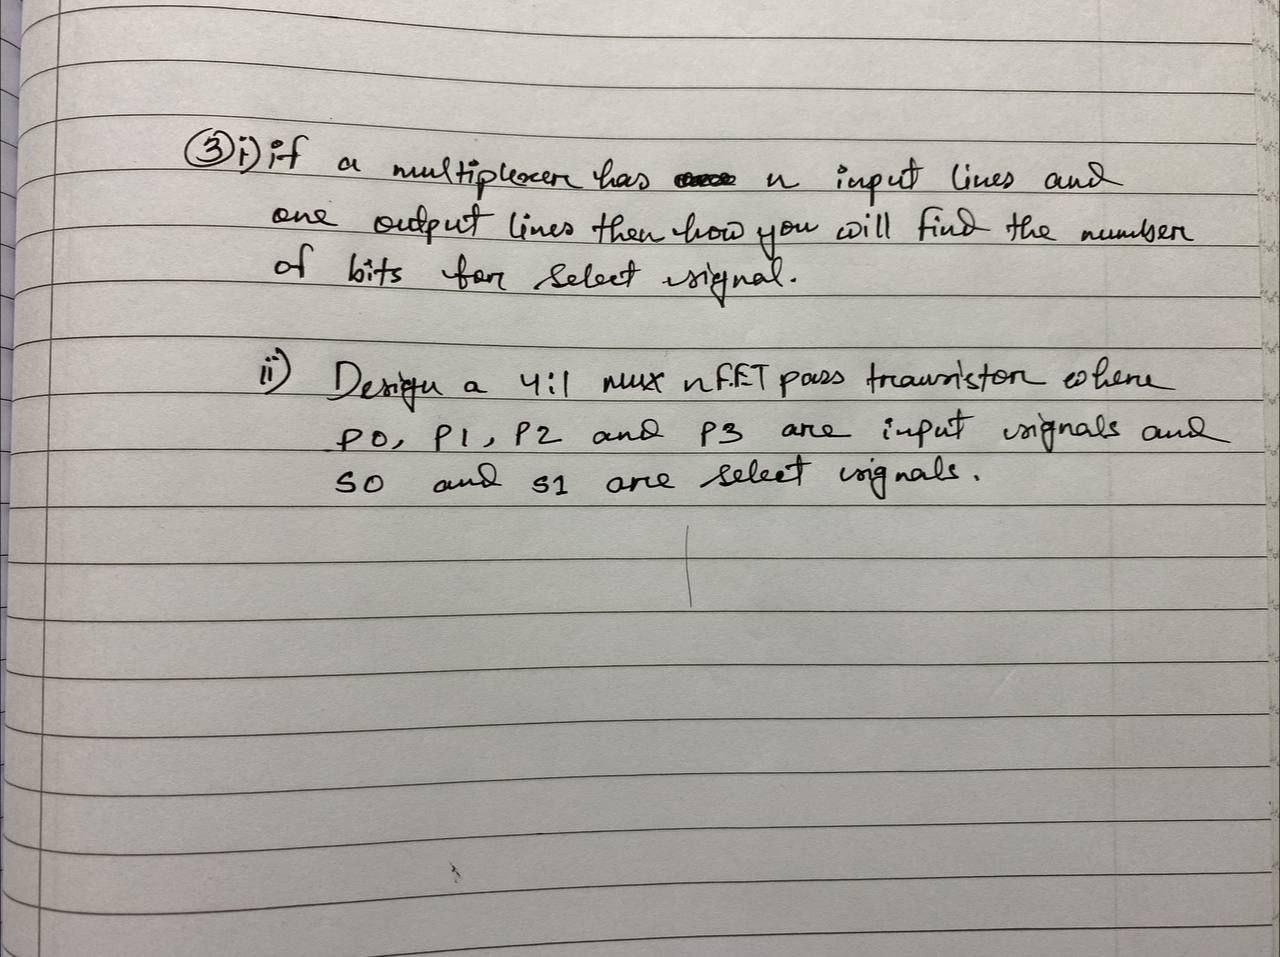 ③ i) if a multiplexer has n input lines and
one output lines then how you will find the number
of bits for select signal.
ii) Design a 4:1 mux nFET pass transistor where
P0, P1, P2 and P3 are input signals and
S0 and S1 are select signals.